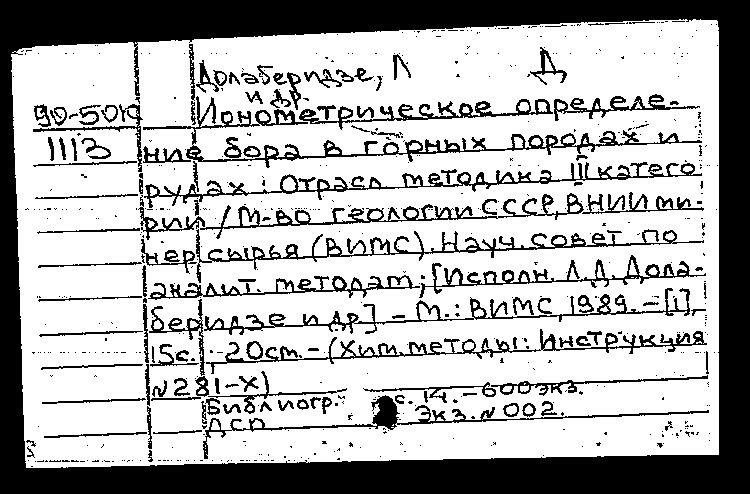 Долаберидзе, Л Д
и др.
90-501с Ионометрическое определе-
1113 ние бора в горных породах и
рудах: Отрасл методика III катего
рии / М-во геологии СССР, ВНИИ ми-
нер сырья (ВИМС). Науч. совет по
аналит. методам; [Исполн. Л.Д. Дола-
беридзе и др] - М.: ВИМС, 1989. - [1],
15с.; 20ст. - (Хим. методы: Инструкция
№281-Х)
Библиогр.: с. 14. - 600 экз.
ДСП Экз. № 002.